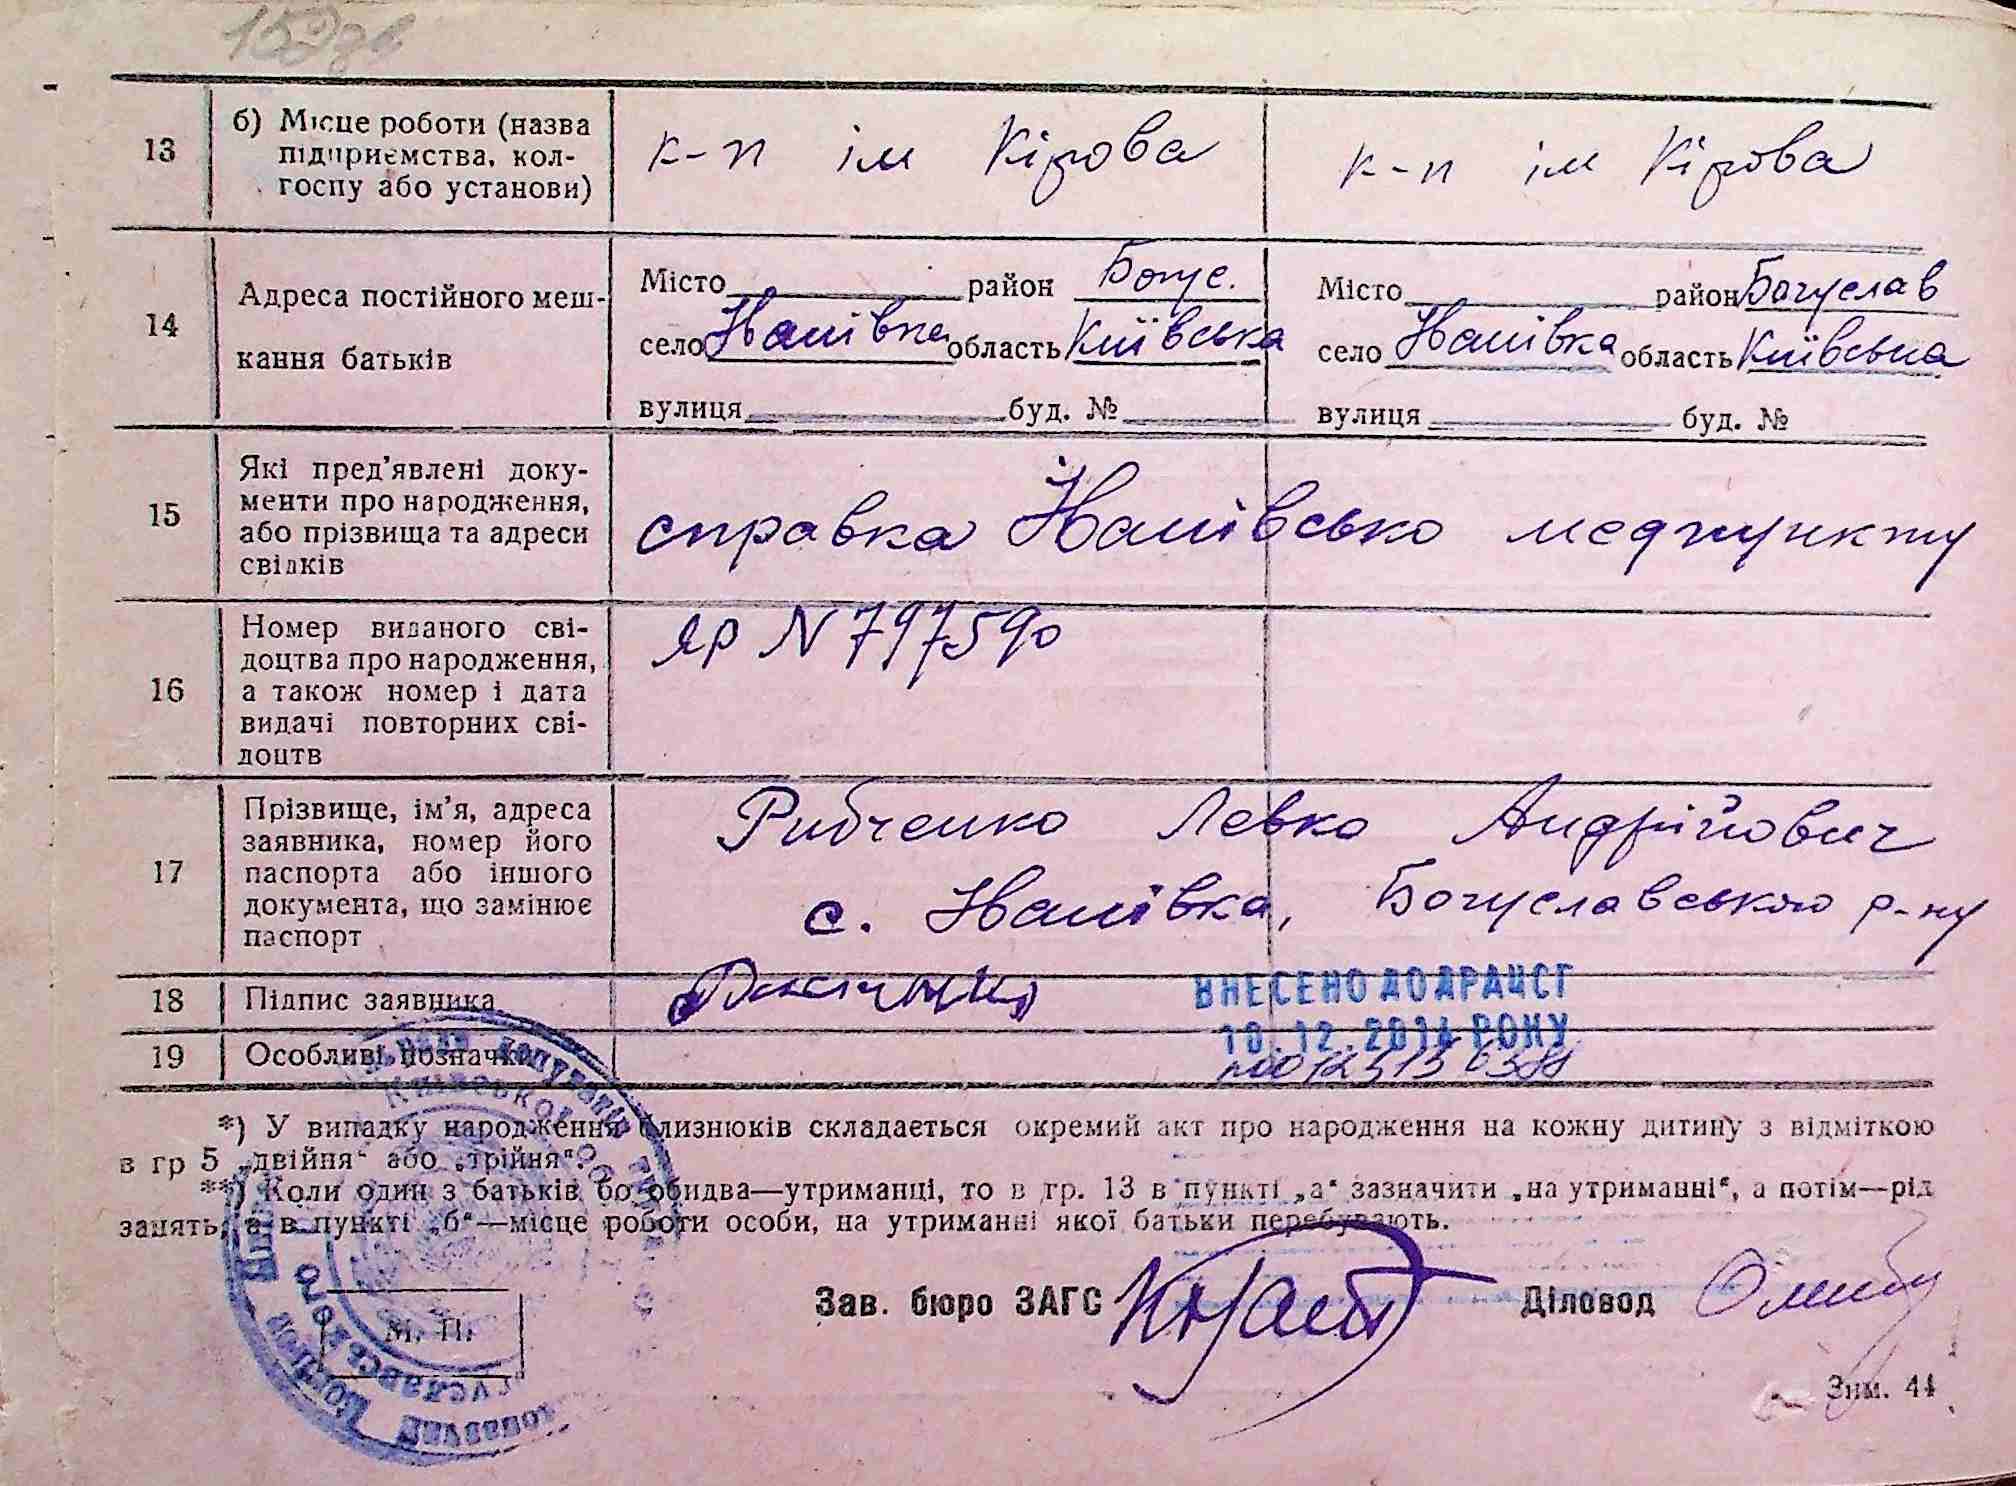 13
б) Місце роботи (назва
підприємства, кол-
госпу або установи)
к-п ім Кірова
к-п ім Кірова
14
Адреса постійного меш-
кання батьків
Місто район Богус.
село Іванівка область Київська
вулиця буд. №
Місто район Богуслав
село Іванівка область Київська
вулиця буд. №
15
Які пред’явлені доку-
менти про народження,
або прізвища та адреси
свідків
справка Іванівсько медпункту
16
Номер виданого сві-
доцтва про народження,
а також номер і дата
видачі повторних сві-
доцтв
ЯР N 797590
17
Прізвище, ім’я, адреса
заявника, номер його
паспорта або іншого
документа, що замінює
паспорт
Рибченко Левко Андрійович
с. Іванівка, Богуславського р-ну
18
Підпис заявника
ВНЕСЕНО ДО ДРАЦСГ
10.12.2014 РОКУ
19
Особливі позначки
*) У випадку народження близнюків складається окремий акт про народження на кожну дитину з відміткою
в гр 5 „двійня“ або „трійня“.
**) Коли один з батьків бо обидва—утриманці, то в гр. 13 в пункті „а“ зазначити „на утриманні“, а потім—рід
занять, а в пункті „б“—місце роботи особи, на утриманні якої батьки перебувають.
М. П.
Зав. бюро ЗАГС
Діловод
Зим. 44